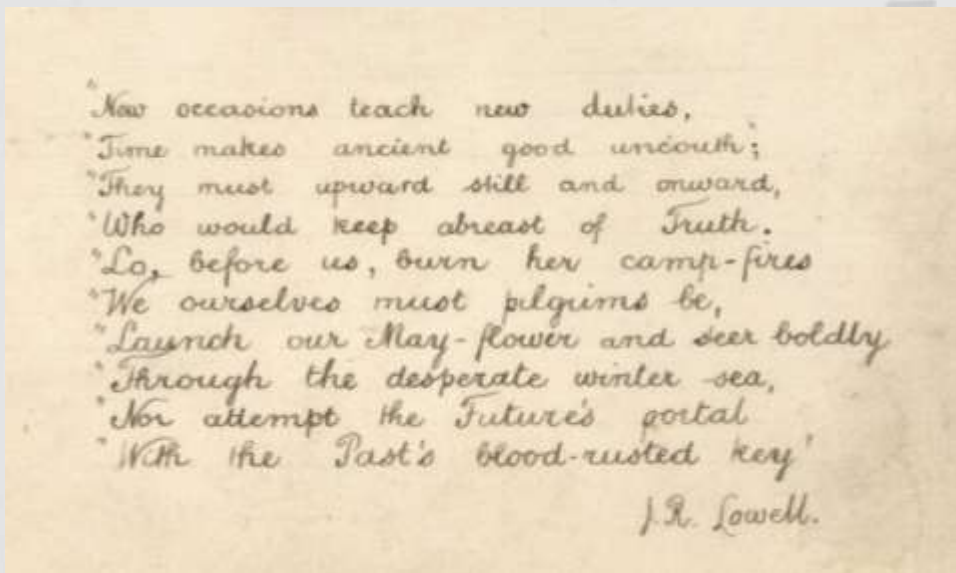 "New occasions teach new duties,
"Time makes ancient good uncouth;
"They must upward still and onward,
"Who would keep abreast of Truth.
"Lo, before us, burn her camp-fires
"We ourselves must pilgrims be,
"Launch our May-flower and seer boldly
"Through the desperate winter sea,
"Nor attempt the Future's portal
"With the Past's blood-rusted key'
J.R. Lowell.